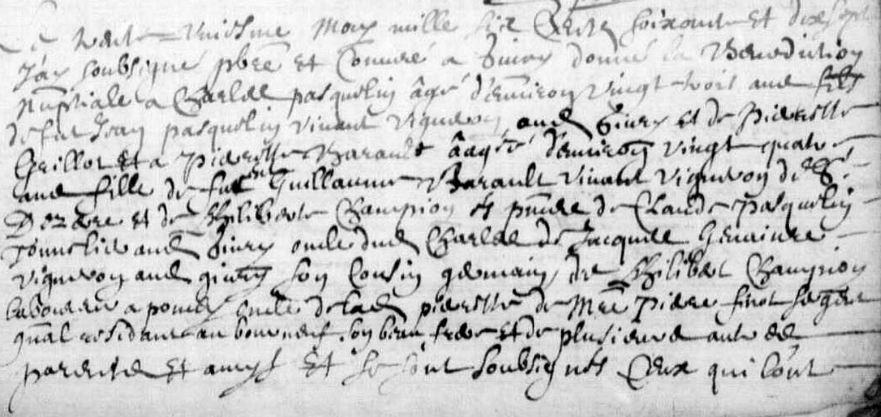 Le vent uniesme May mille six Cents soixante et dix sept
J'ay soubsigné pbre et Convié a Givry donné la Benediction
Nuptiale a Charles pasquelin âgé d'environ vingt trois ans fils
de fut Jean pasquelin vivant vigneron aud Givry et de Pierrette
Grillot et a Pierrette Barault âagée d'environ vingt quatre
ans fille de fut Guillaume Barault vivant vigneron de St
Dezere et de Philiberte Champion Es pnce de Claude Pasquelin
Tonnelier aud Givry oncle dud Charles de Jacques
vigneron aud givry son Cousin germain, de Philibert Champion
laboureur a poncey oncle de lad pierrette de Mre Pierre
residant au bourneuf son beau frere et de plusieurs autres
parents et amys Et se sont soubsignés Ceux qui l'ont